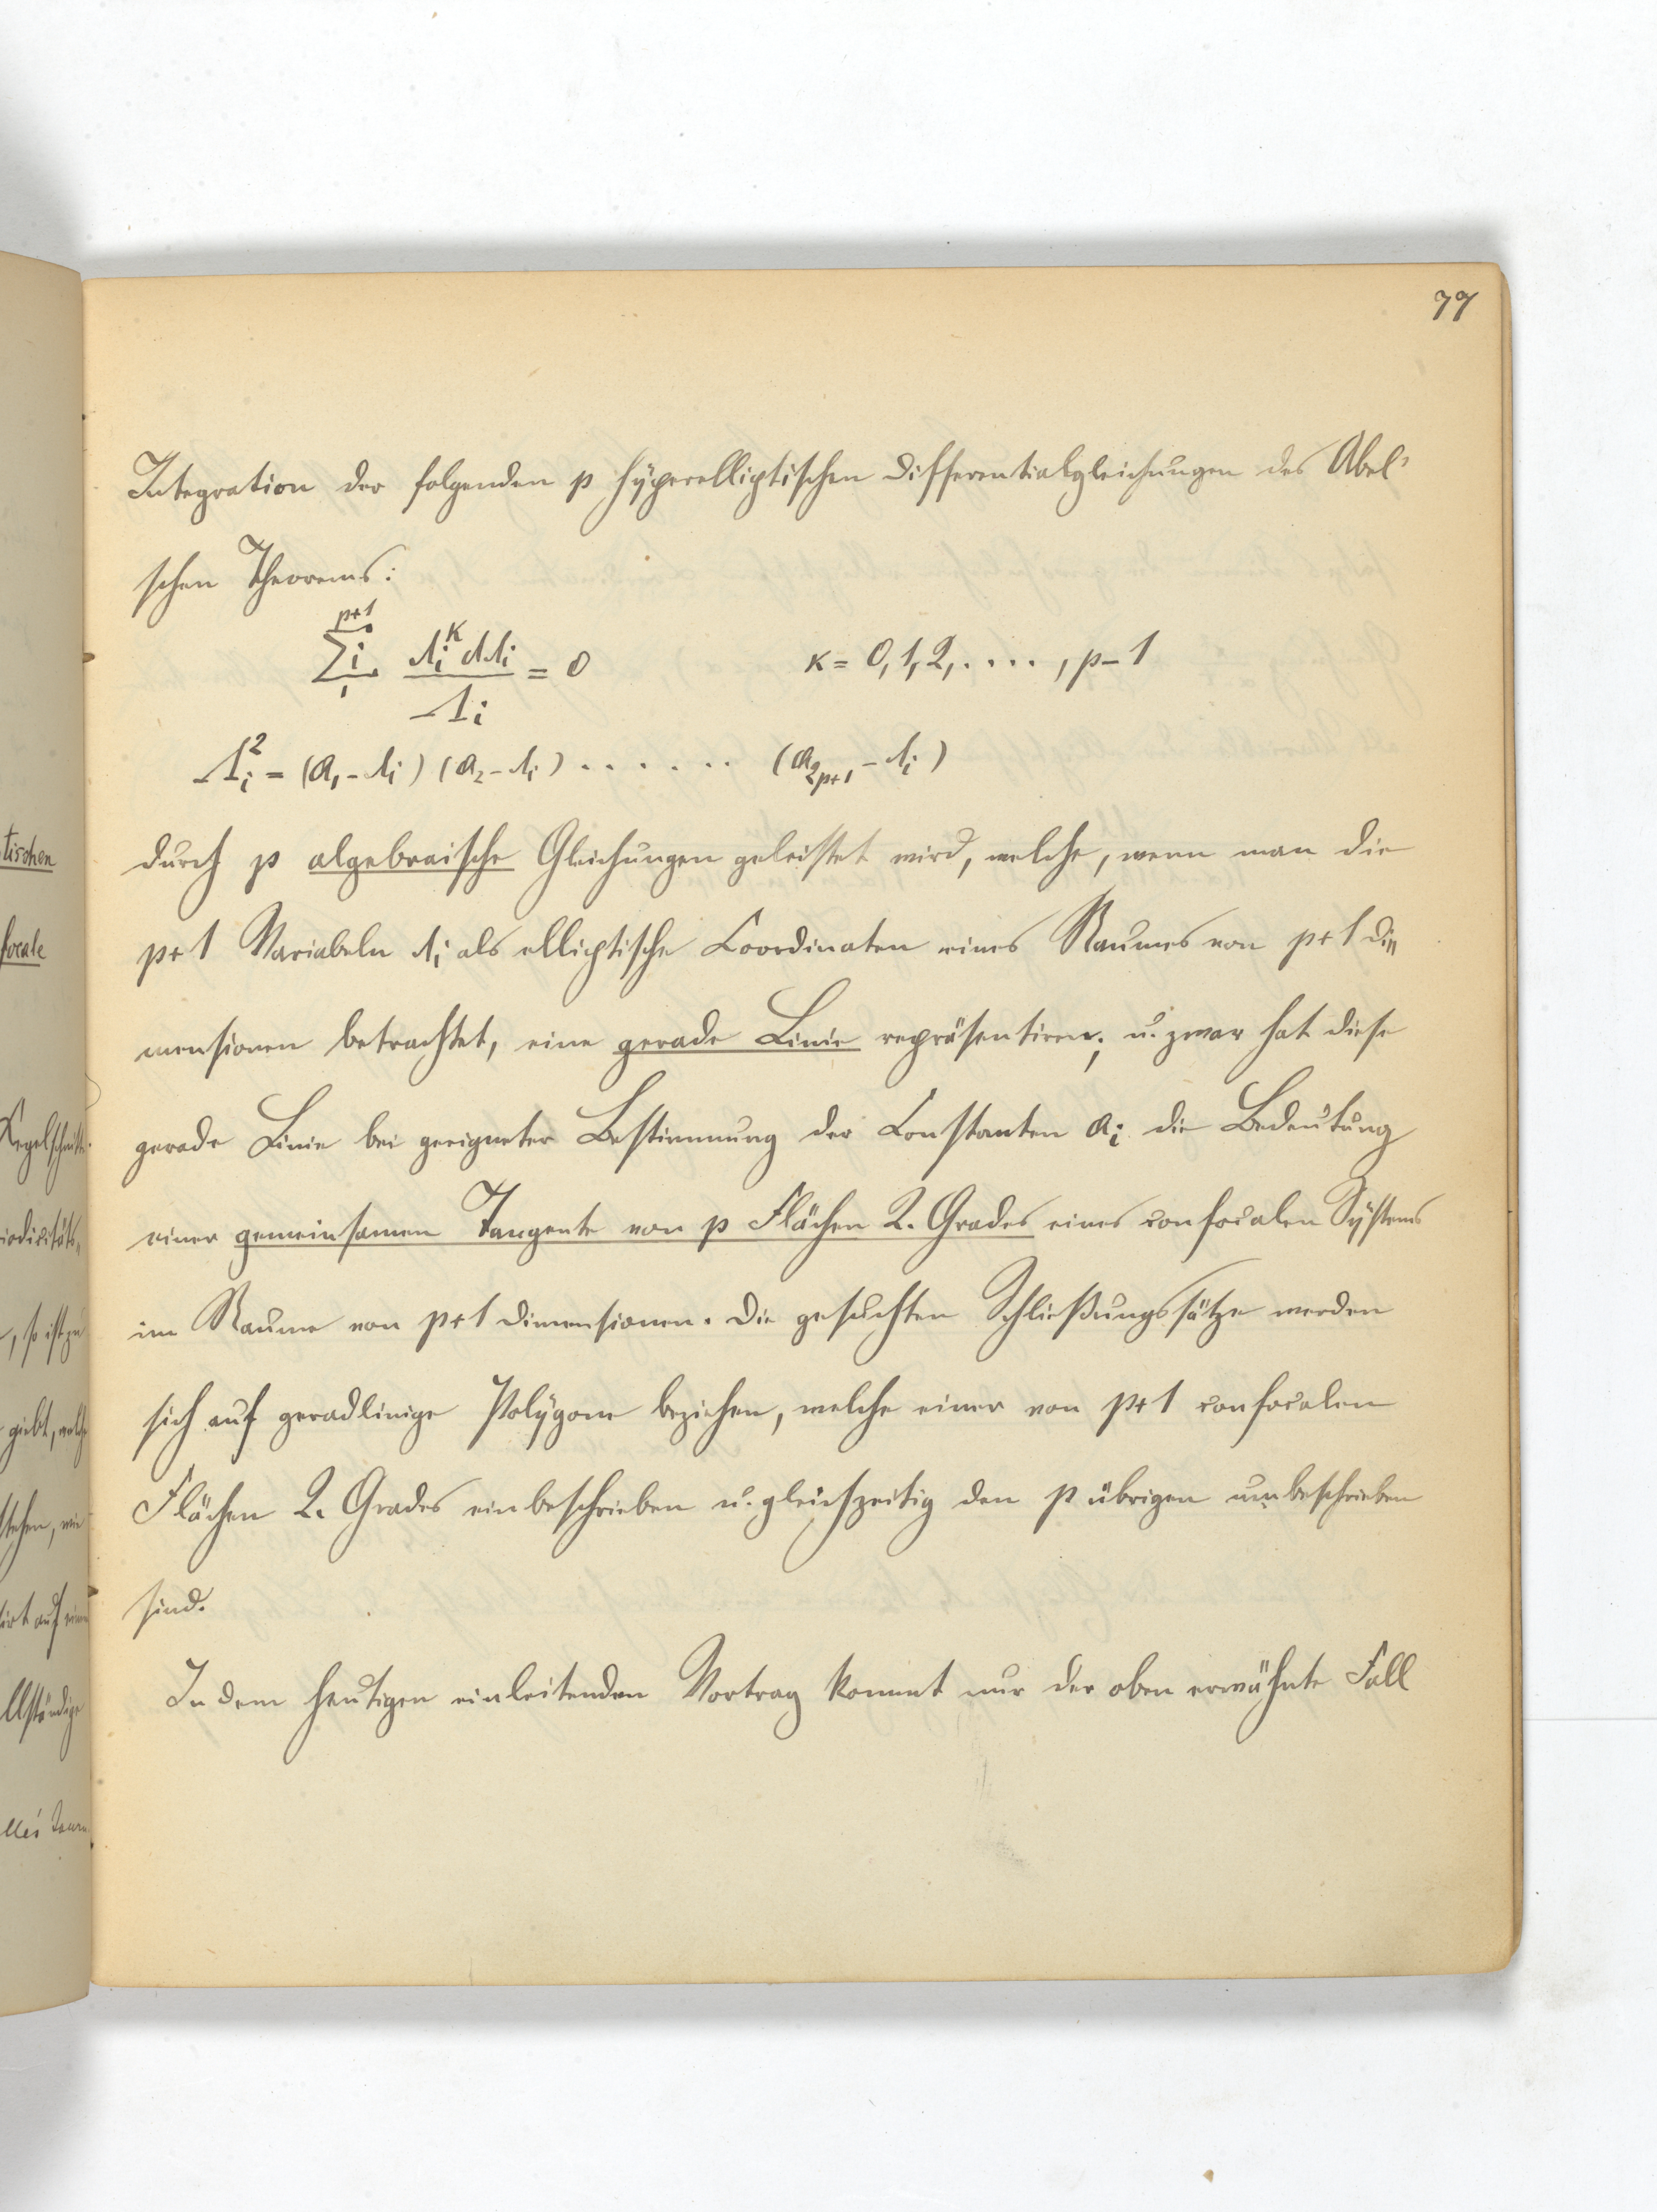 77
Integration der folgenden p hyperelliptischen Differentialgleichungen des Abel'
schen Theorems:
p+1
Σi λi^κ dλi / Λi = 0 κ = 0, 1, 2, . . . . , p – 1
1
Λi² = (a1 – λi) (a2 – λi) . . . . . . (a2p+1 – λi)
durch p algebraische Gleichungen geleistet wird, welche, wenn man die
p+1 Variabeln λi als elliptische Coordinaten eines Raumes von p+1 Di=
mensionen betrachtet, eine gerade Linie repräsentiren; u. zwar hat diese
gerade Linie bei geeigneter Bestimmung der Constanten ai die Bedeutung
einer gemeinsamen Tangente von p Flächen 2. Grades eines confocalen Systems
im Raume von p+1 Dimensionen. Die gesuchten Schließungssätze werden
sich auf geradlinige Polygone beziehen, welche einer von p+1 confocalen
Flächen 2. Grades einbeschrieben u. gleichzeitig den p übrigen umbeschrieben
sind.
In dem heutigen einleitenden Vortrag kommt nur der oben erwähnte Fall
tischen
focale
Kegelschnitte
iodicitäts-
, so ist zu
giebt, welche
stehen, wie
irt auf einen
llständige
lle's Journ.